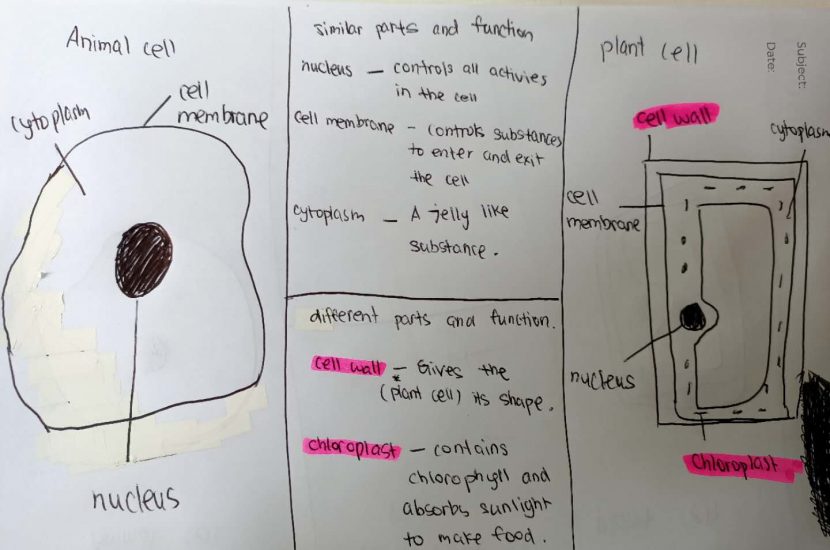 Animal cell
cytoplasm
cell
membrane
nucleus
similar parts and function
nucleus – controls all activies
in the cell
cell membrane – controls substances
to enter and exit
the cell
cytoplasm – A jelly like
substance.
different parts and function.
cell wall – Gives the
* (plant cell) its shape.
chloroplast – contains
chlorophyll and
absorbs sunlight
to make food.
plant cell
Subject:
Date:
cell wall
cytoplasm
cell
membrane
nucleus
Chloroplast